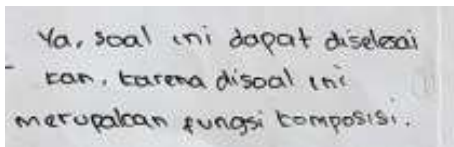 Ya, soal ini dapat diselesai
kan, karena disoal ini
merupakan fungsi komposisi.